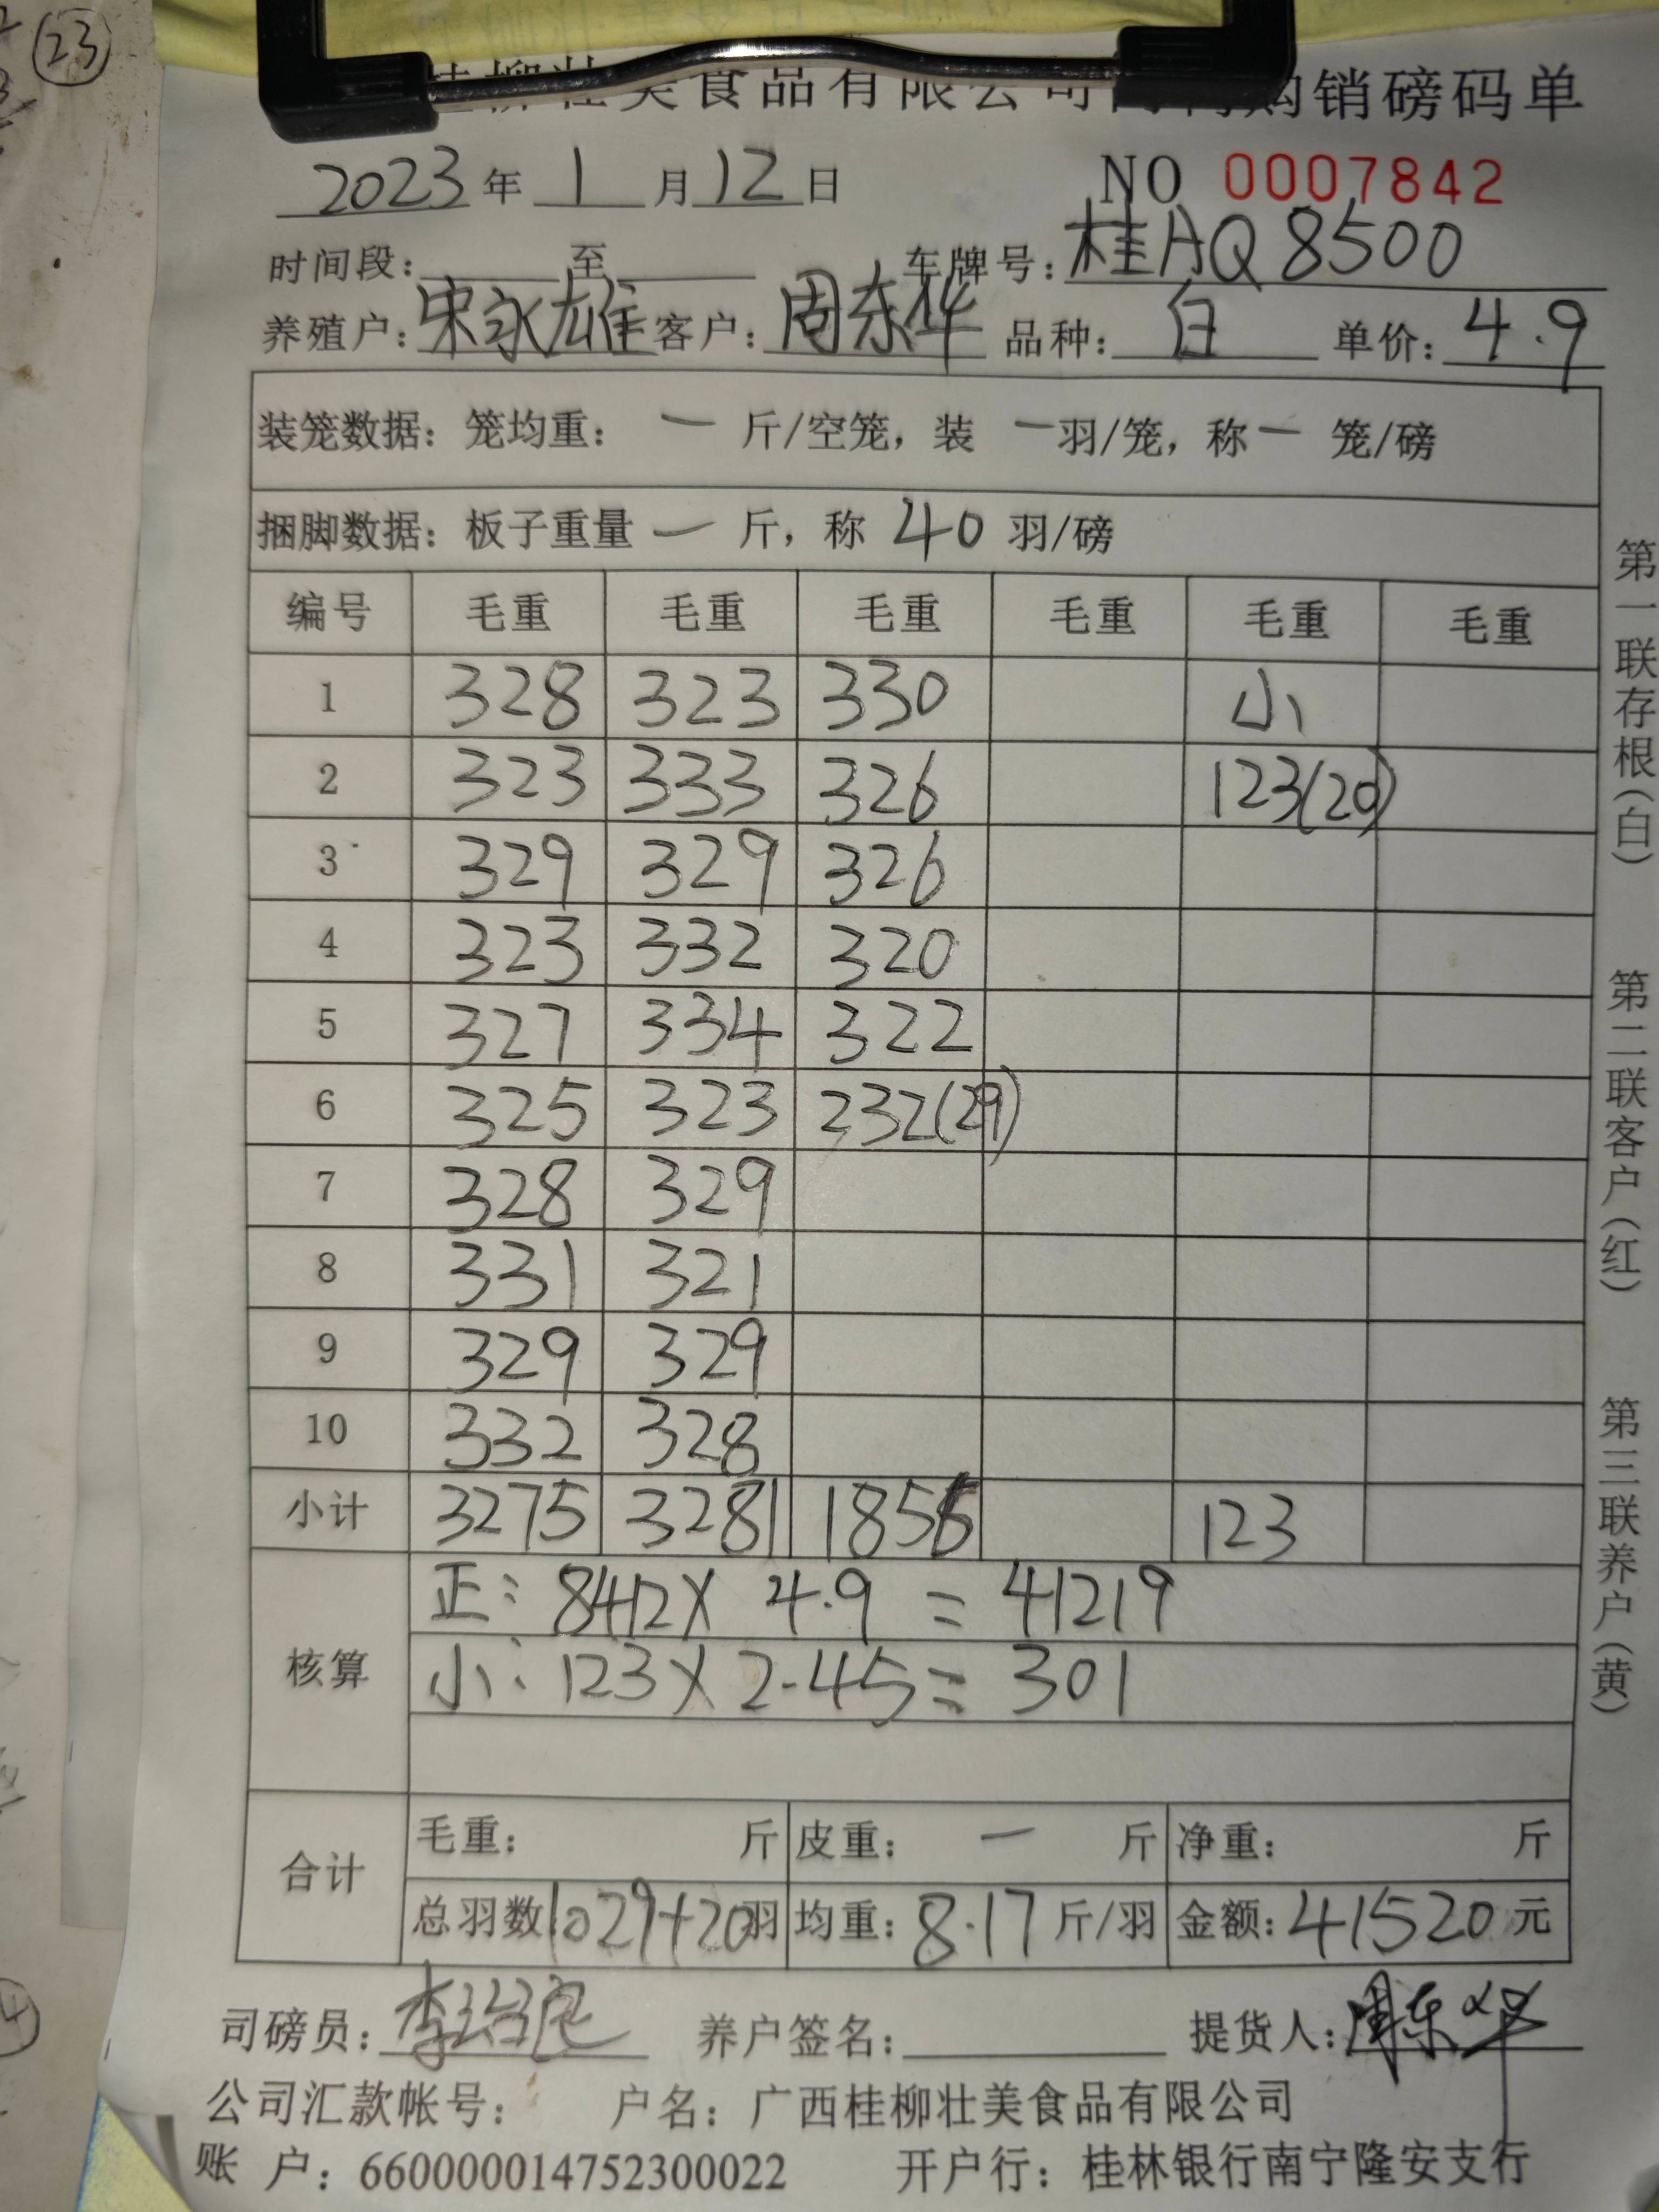 23
桂柳壮美食品有限公司 购销磅码单
2023年 1 月 12 日 NO 0007842
时间段: 至 车牌号: 桂AQ8500
养殖户: 宋永雄 客户: 周东华 品种: 白 单价: 4.9
装笼数据: 笼均重: 一 斤/空笼, 装 一 羽/笼, 称 一 笼/磅
捆脚数据: 板子重量 一 斤, 称 40 羽/磅
编号 毛重 毛重 毛重 毛重 毛重 毛重
1 328 323 330 小
2 323 333 326 123(20)
3 329 329 326
4 323 332 320
5 327 334 322
6 325 323 232(29)
7 328 329
8 331 321
9 329 329
10 332 328
小计 3275 3281 1856 123
核算 正: 8412X 4.9 = 41219
小: 123X2.45= 301
合计 毛重: 斤 皮重: 一 斤 净重: 斤
总羽数: 1029+20羽 均重: 8.17 斤/羽 金额: 41520元
司磅员: 养户签名: 提货人: 周东华
公司汇款帐号: 户名: 广西桂柳壮美食品有限公司
账 户: 660000014752300022 开户行: 桂林银行南宁隆安支行
第一联存根(白) 第二联客户(红) 第三联养户(黄)